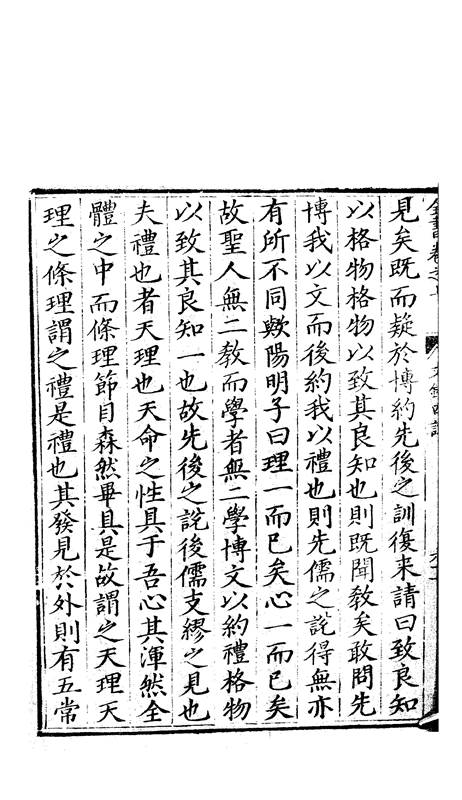 全書卷之七
見矣旣而疑於博約先後之訓復來請曰致良知
以格物格物以致其良知也則旣聞教矣敢問先
博我以文而後約我以禮也則先儒之說得無亦
有所不同歟陽明子曰理一而已矣心一而已矣
故聖人無二教而學者無二學博文以約禮格物
以致其良知一也故先後之說後儒支繆之見也
夫禮也者天理也天命之性具于吾心其渾然全
體之中而條理節目森然畢具是故謂之天理天
理之條理謂之禮是禮也其發見於外則有五常